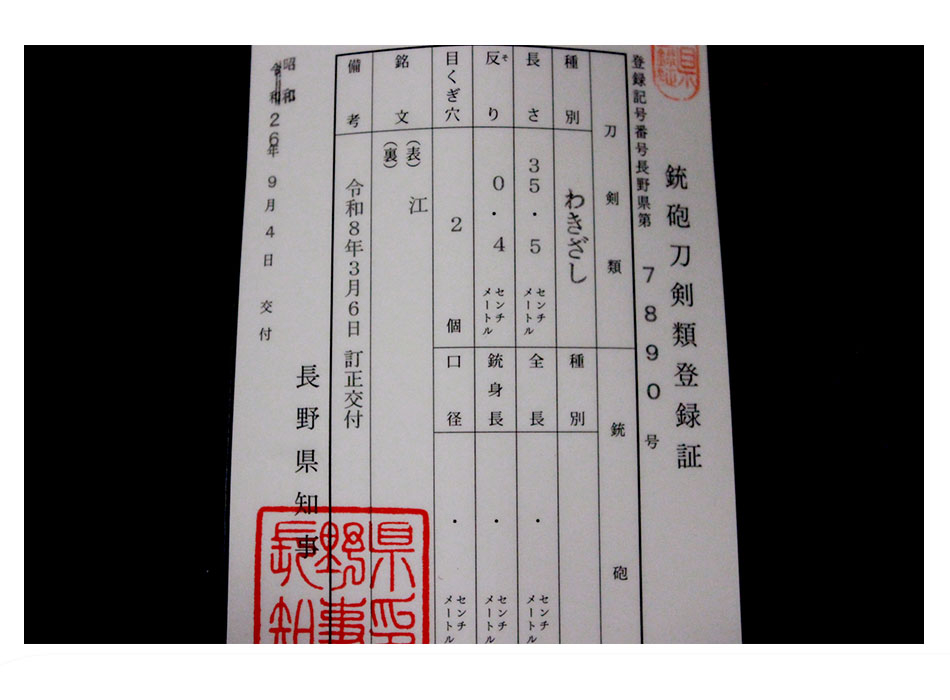 銃砲刀剣類登録証
登録記号番号長野県第7890号
刀剣類
銃砲
種別
わきざし
種別
長さ
35.5
センチメートル
全長
・
センチメートル
反り
そ
0.4
センチメートル
銃身長
・
センチメートル
目くぎ穴
2個
口径
・
センチメートル
銘文
(表)
江
(裏)
備考
令和8年3月6日訂正交付
昭和
令和
26年9月4日交付
長野県知事